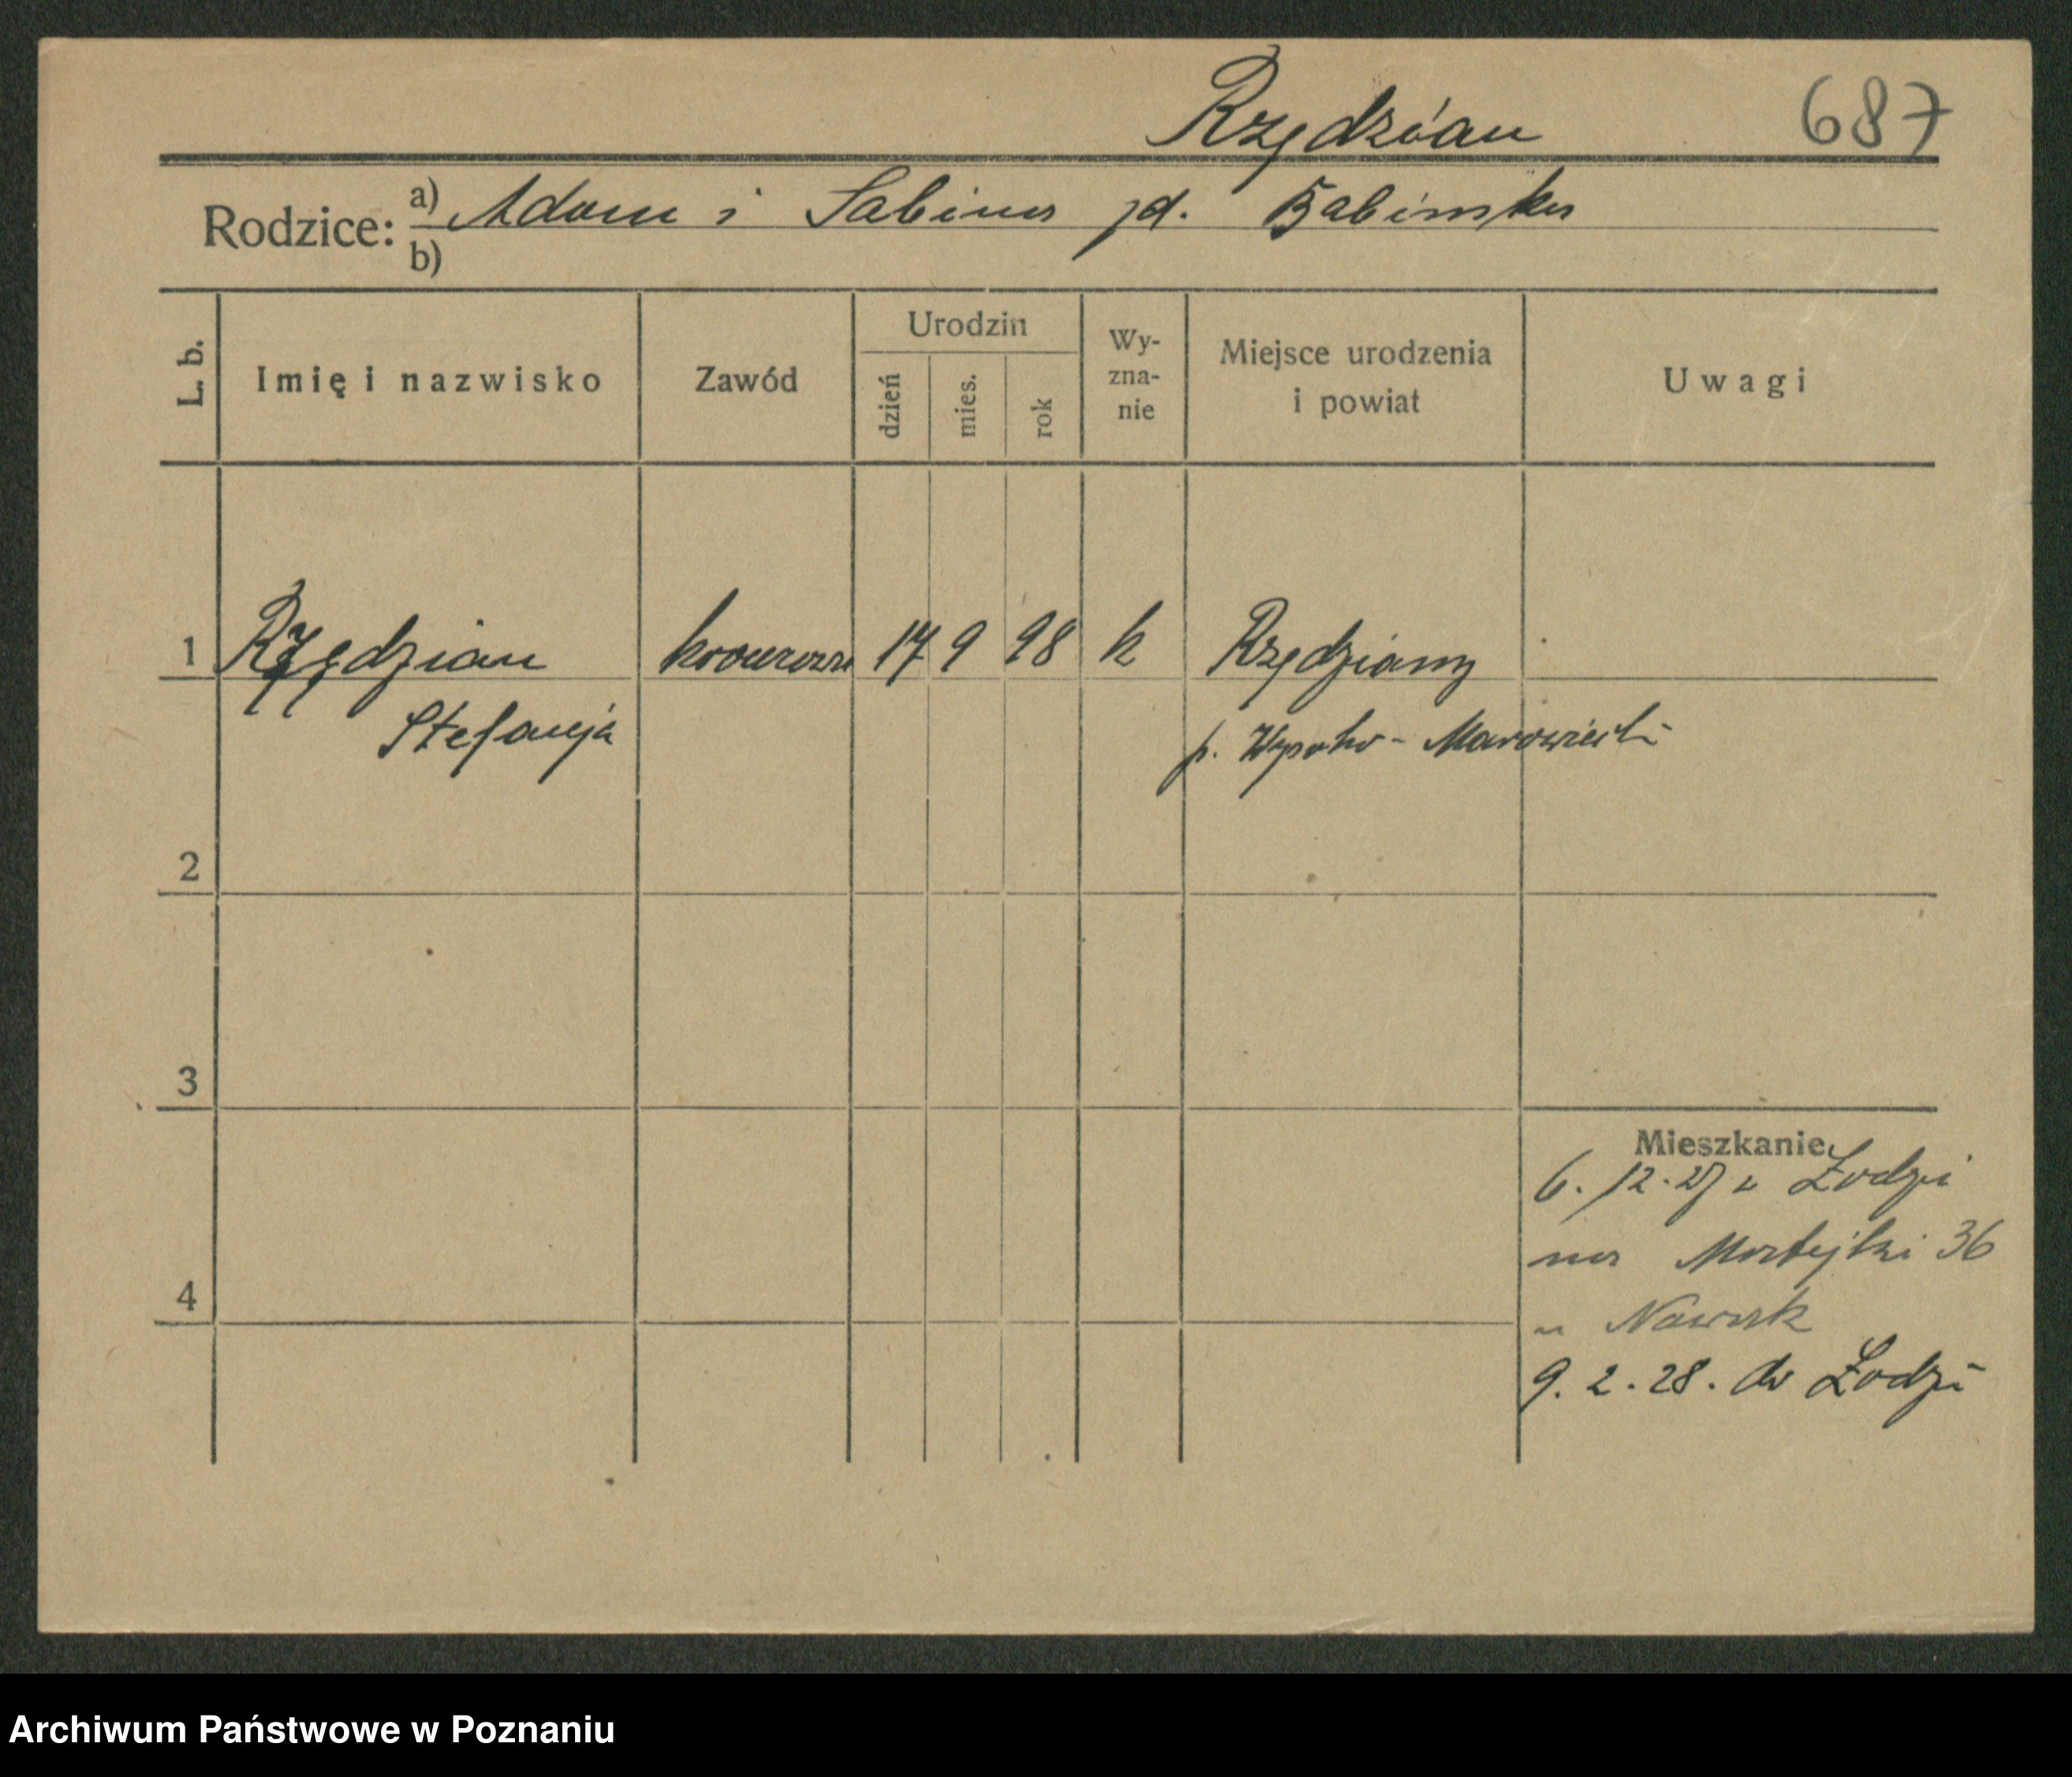 Rzędzian 687
Rodzice: a) Adam i Sabina zd. Babińska
b)
L. b. Imię i nazwisko Zawód Urodzin dzień mies. rok Wy-zna-nie Miejsce urodzenia i powiat Uwagi
1 Rzędzian krawcowa 17 9 98 k Rzędziany
Stefanja p. Wysoko-Mazowiecki
2
3
Mieszkanie
6. 12. 27 z Łodzi
na Matejki 36
4
u Nowak
9. 2. 28. do Łodzi
Archiwum Państwowe w Poznaniu